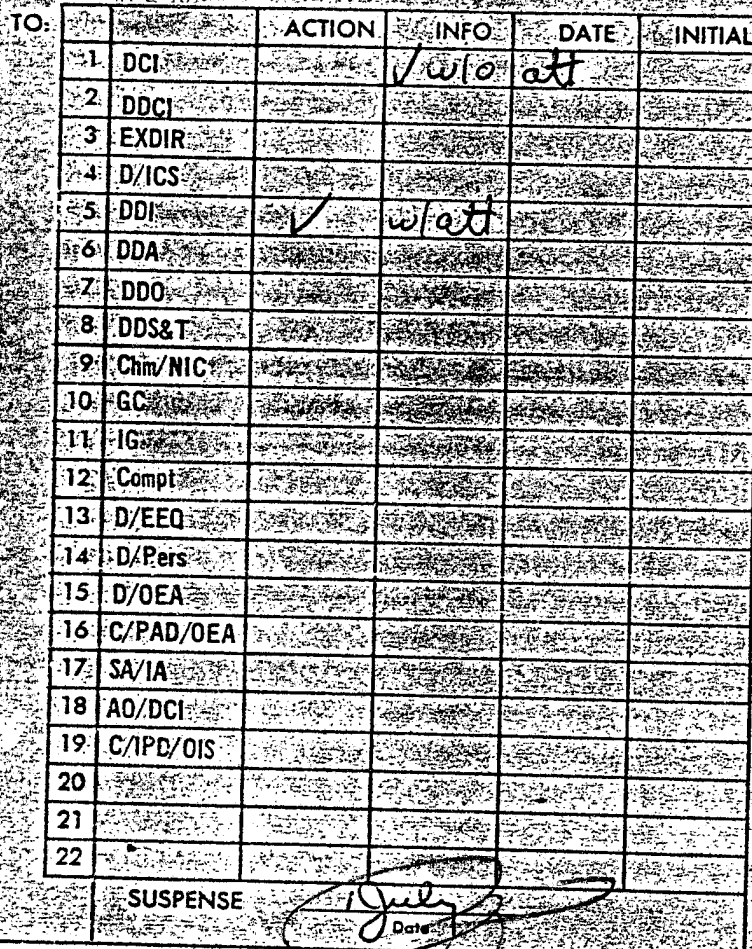 TO: ACTION INFO DATE INITIAL
1 DCI ✓ w/o att
2 DDCI
3 EXDIR
4 D/ICS
5 DDI ✓ w/att
6 DDA
7 DDO
8 DDS&T
9 Chm/NIC
10 GC
11 IG
12 Compt
13 D/EEO
14 D/Pers
15 D/OEA
16 C/PAD/OEA
17 SA/IA
18 AO/DCI
19 C/IPD/OIS
20
21
22
SUSPENSE 1 July
Date